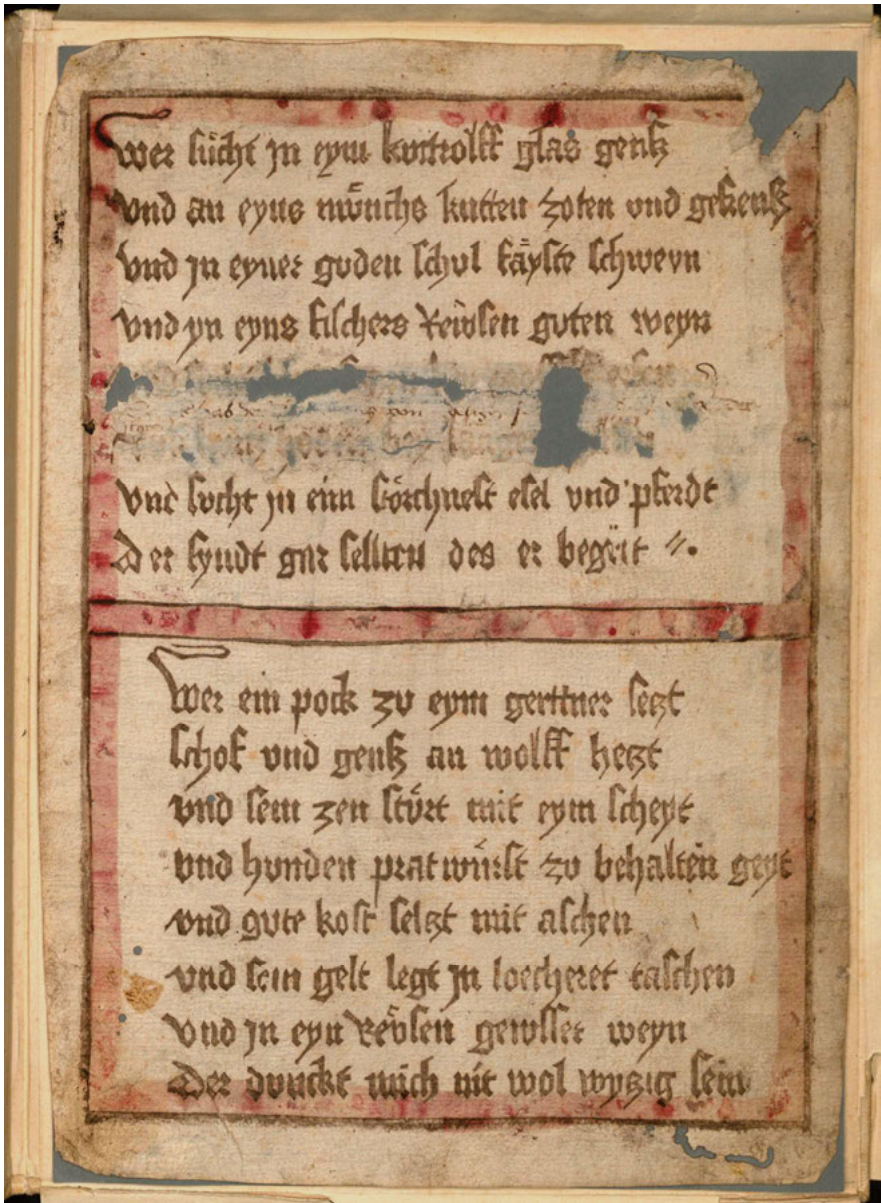 Wer sücht jn eym kuttrolff glas genß
Vnd an eyns münchs kutten zoten vnd gefrenß
Vnd jn eyner guden schul fäyste schweyn
Vnd yn eyns fischers Reüsen guten weyn
Vnd sucht jn eim störchnest esel vnd pferdt
Der fyndt gar sellten des er begërt
Wer ein pock zu eym gerttner setzt
schof vnd genß an wolff hetzt
vnd sein zen stürt mit eym scheyt
vnd hunden pratwürst zu behalten geyt
vnd gute kost seltzt mit aschen
vnd sein gelt legt jn loecheret taschen
Vnd jn eyn Reüsen gewsset weyn
Der dunckt mich nit wol wytzig sein